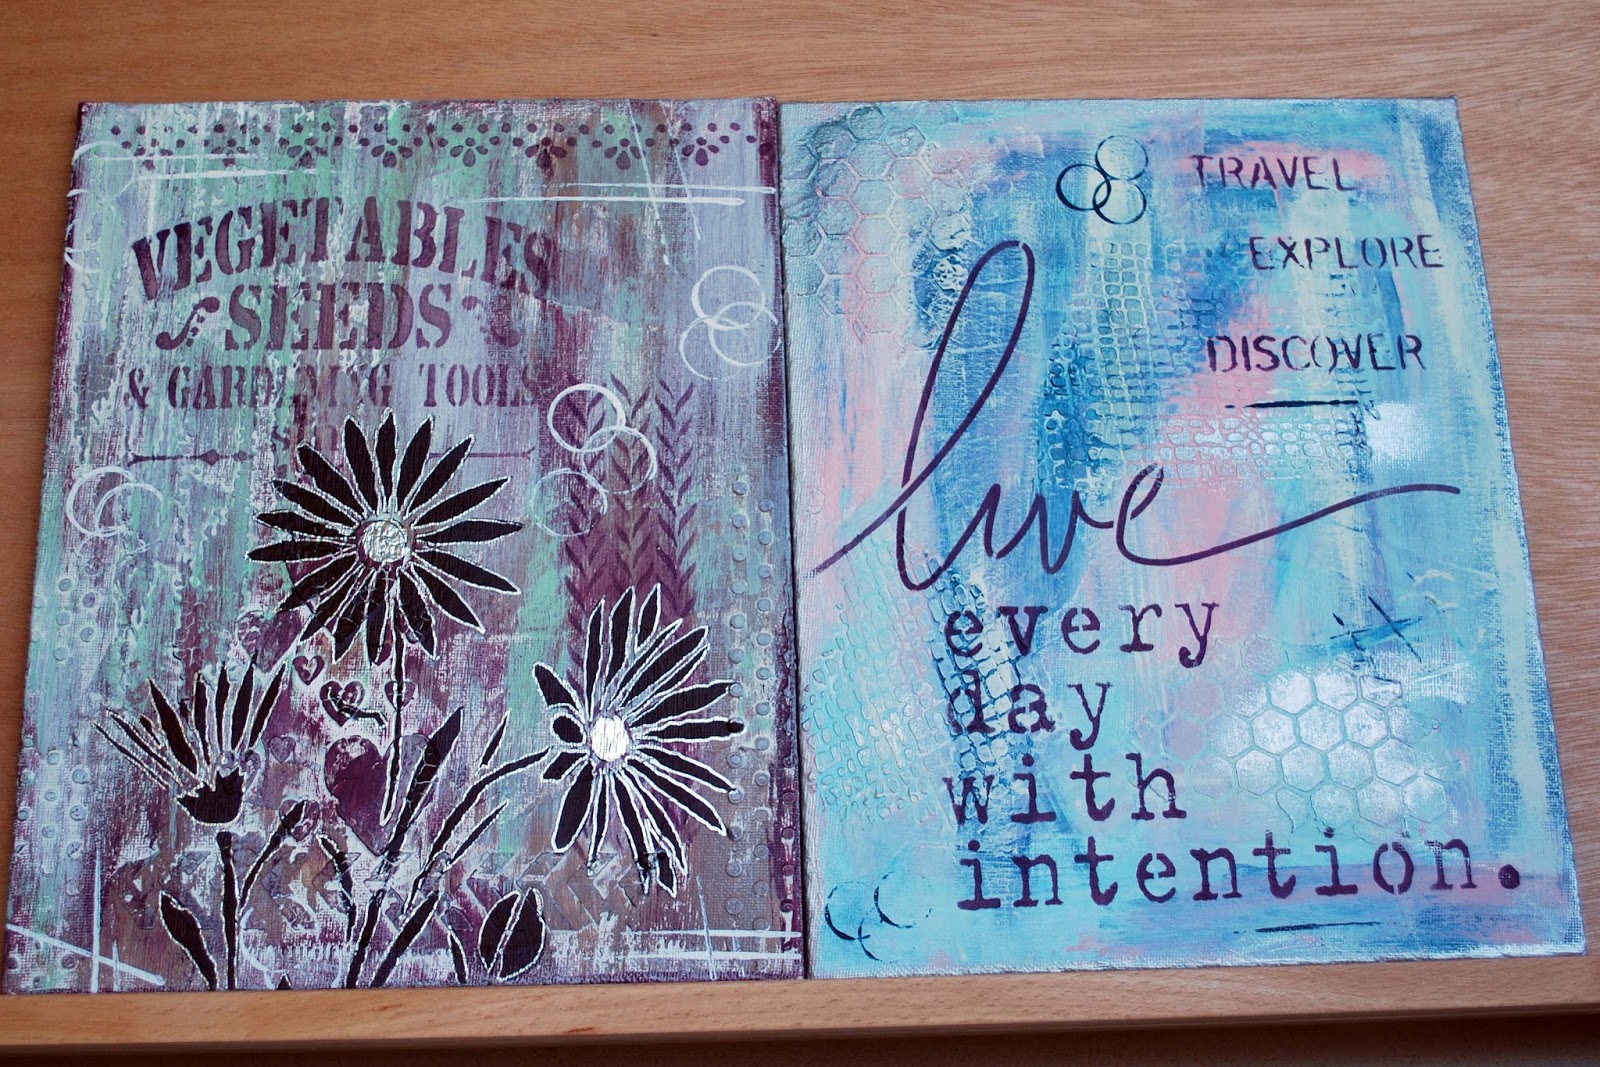 VEGETABLES
SEEDS
& GARDENING TOOLS
TRAVEL
EXPLORE
DISCOVER
live
every
day
with
intention.